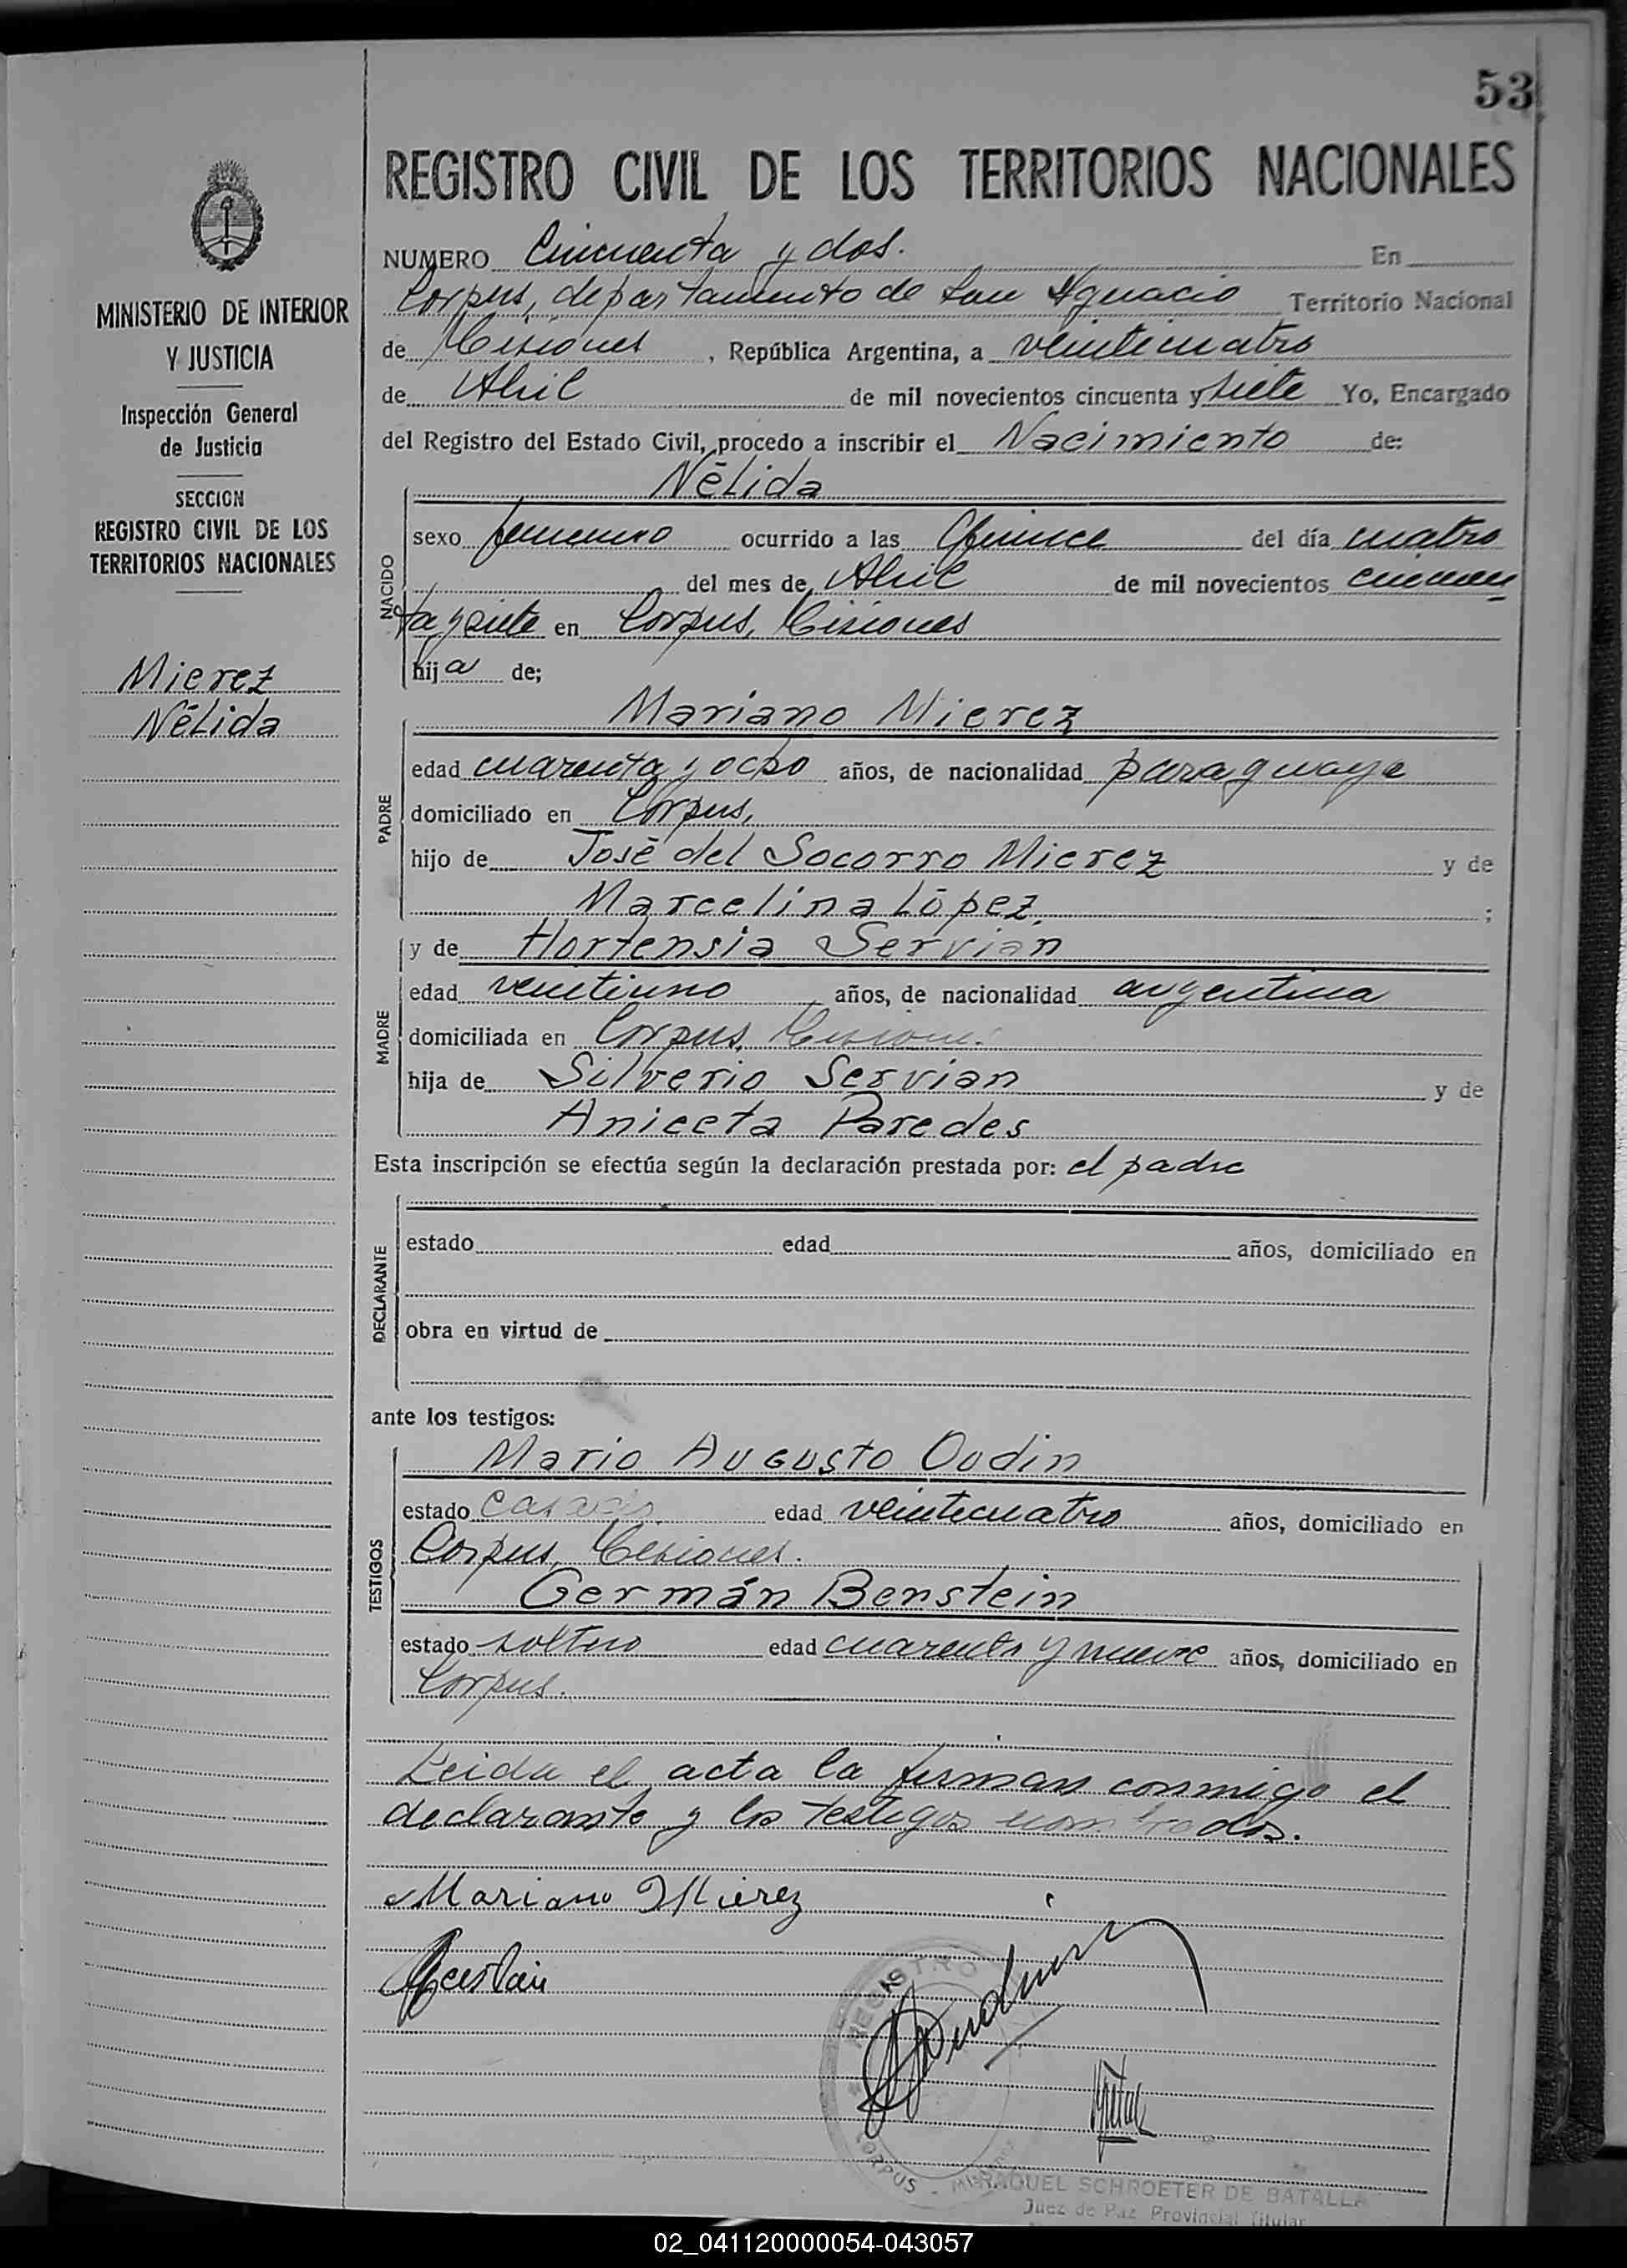 53
REGISTRO CIVIL DE LOS TERRITORIOS NACIONALES
MINISTERIO DE INTERIOR
Y JUSTICIA
Inspección General
de Justicia
SECCION
REGISTRO CIVIL DE LOS
TERRITORIOS NACIONALES
Mierez
Nélida
NUMERO Cincuenta y dos. En
Corpus, departamento de San Ignacio Territorio Nacional
de Misiones, República Argentina, a veinticuatro
de Abril de mil novecientos cincuenta y siete Yo, Encargado
del Registro del Estado Civil, procedo a inscribir el Nacimiento de:
NACIDO
Nélida
sexo femenino ocurrido a las Quince del día cuatro
del mes de Abril de mil novecientos cincuen
ta y siete en Corpus, Misiones
hija de;
PADRE
Mariano Mierez
edad cuarenta y ocho años, de nacionalidad paraguaya
domiciliado en Corpus,
hijo de José del Socorro Mierez y de
Marcelina López. ;
MADRE
y de Hortensia Servian
edad veintiuno años, de nacionalidad argentina
domiciliada en Corpus, Misiones.
hija de Silverio Servian y de
Aniceta Paredes
Esta inscripción se efectúa según la declaración prestada por: el padre
DECLARANTE
estado edad años, domiciliado en
obra en virtud de
ante los testigos:
TESTIGOS
Mario Augusto Oudin
estado casado edad veinticuatro años, domiciliado en
Corpus, Misiones.
Germán Benstein
estado soltero edad cuarenta y nueve años, domiciliado en
Corpus.
Leida el acta la firman conmigo el
declarante y los testigos nombrados.
Mariano Mierez
REGISTRO
CORPUS - MISIONES
RAQUEL SCHROETER DE BATALLA
Juez de Paz Provincial Titular
02_041120000054-043057